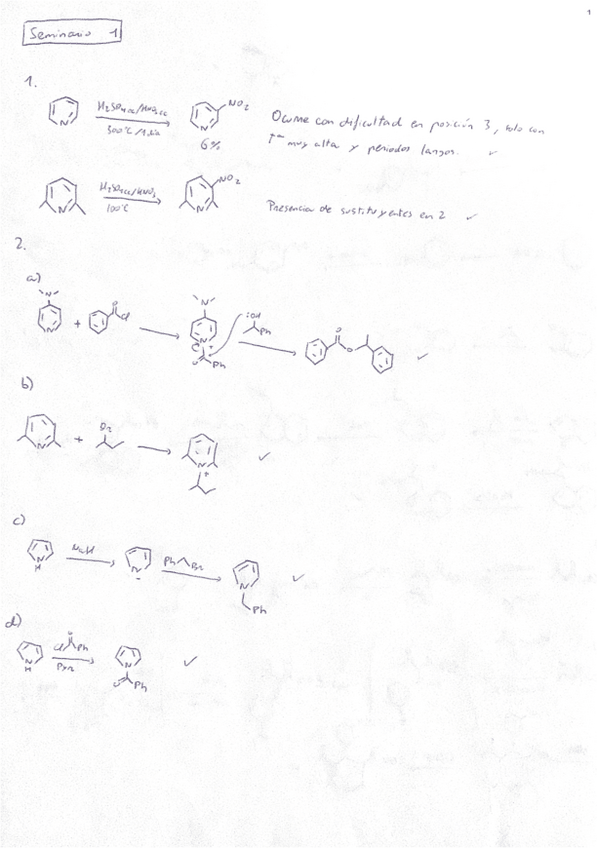 1
Seminario 1
1.
H₂SO₄ cc/HNO₃ cc
300°C/1 día
N
N
NO₂
6%
Ocurre con dificultad en posición 3, solo con
Tª muy alta y periodos largos. ✓
H₂SO₄ cc/HNO₃
100°C
N
N
NO₂
Presencia de sustituyentes en 2 ✓
2.
a)
N
N
+
O
Cl
N
N
+
O
Ph
:OH
Ph
O
O
✓
b)
N
+
Br
N
+
✓
c)
N
H
NaH
N
-
Ph
Br
N
Ph
✓
d)
N
H
O
Cl
Ph
N
O
Ph
✓